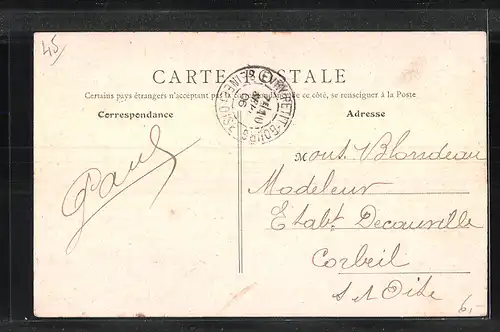 45
CARTE POSTALE
Certains pays étrangers n'acceptant pas la correspondance de ce côté, se renseigner à la Poste
Correspondance
Adresse
EVRY-PETIT-BOURG
SEINE-ET-OISE
06
Paul
Mons. Blondeau
Modeleur
Etabt Decauville
Corbeil
S et Oise
6,-